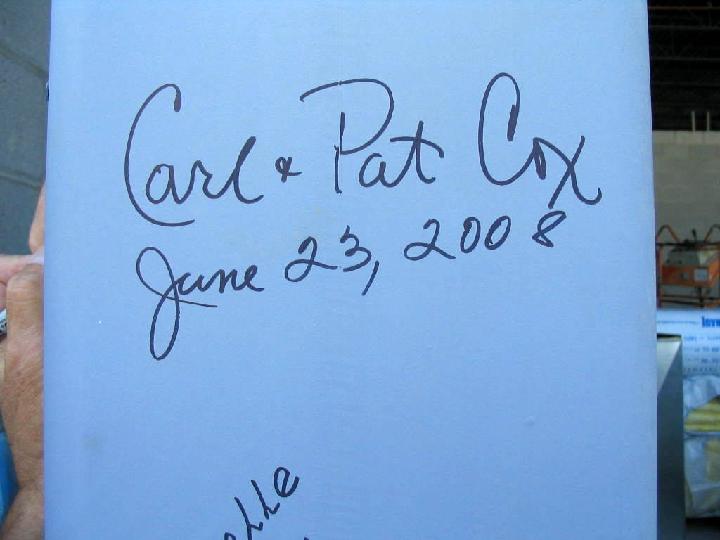 Carl & Pat Cox
June 23, 2008